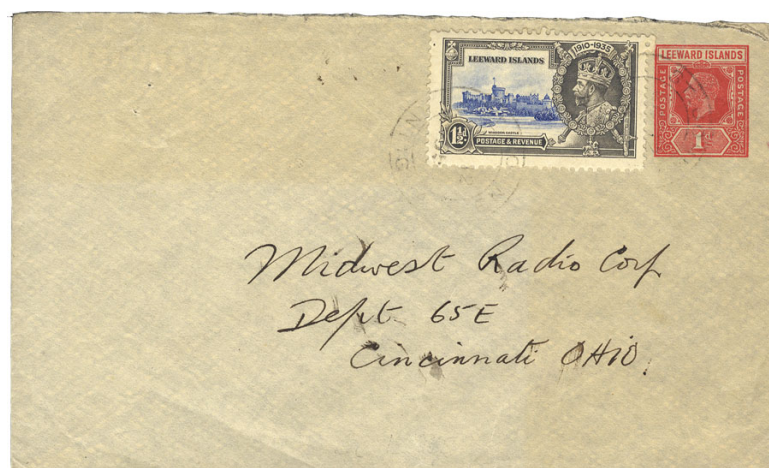 1910-1935
LEEWARD ISLANDS
WINDSOR CASTLE
1½d
POSTAGE & REVENUE
LEEWARD ISLANDS
POSTAGE
POSTAGE
1d
Midwest Radio Corp
Dept 65E
Cincinnati OHIO.